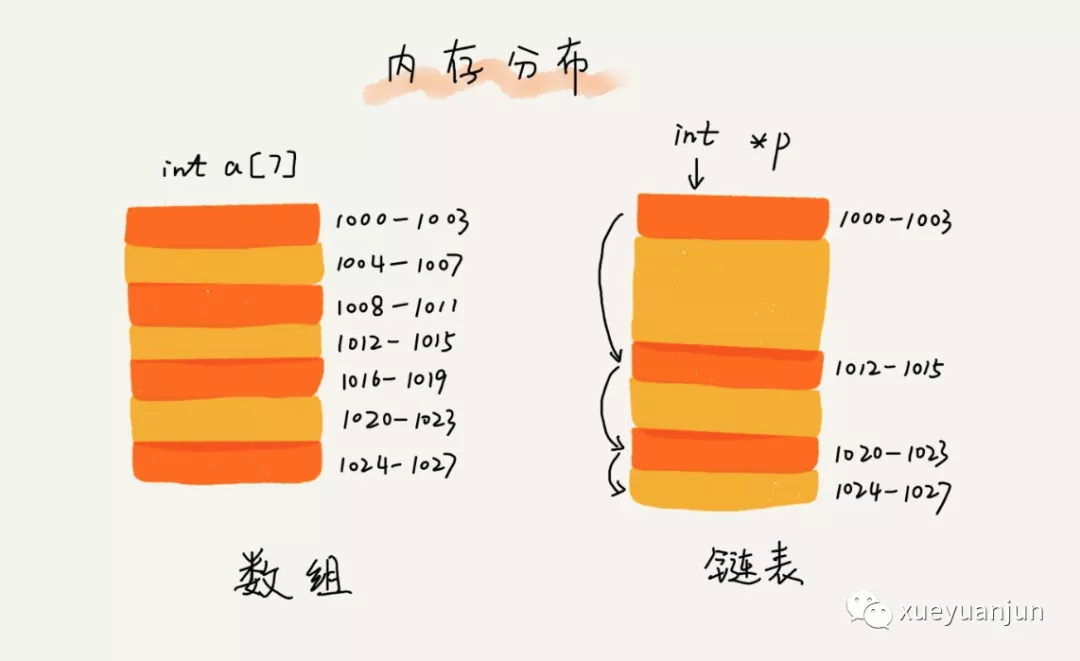 内存分布
int a[7]
1000-1003
1004-1007
1008-1011
1012-1015
1016-1019
1020-1023
1024-1027
数组
int *p
1000-1003
1012-1015
1020-1023
1024-1027
链表
xueyuanjun